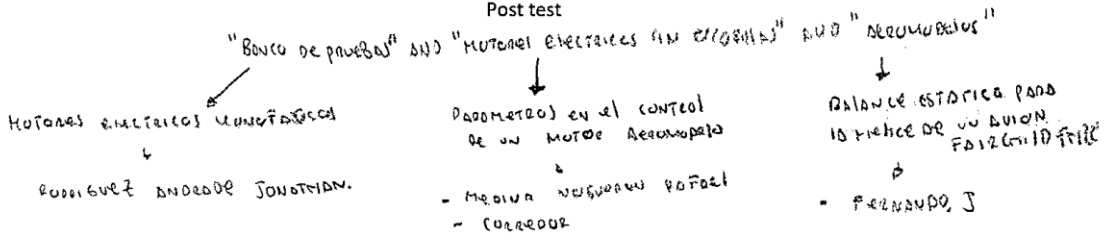 Post test
"BANCO DE PRUEBAS" AND "MOTORES ELECTRICOS SIN ESCOBILLAS" AND "AEROMODELOS"
MOTORES ELECTRICOS MONOFASICOS
RODRIGUEZ ANDRADE JONATHAN.
PARAMETROS EN el CONTROL
DE UN MOTOR AEROMODELO
- MEDINA RAFAEL
- CORREDOR
BALANCE ESTATICO PARA
LA HELICE DE UN AVION
FAIRCHILD
- FERNANDO, J